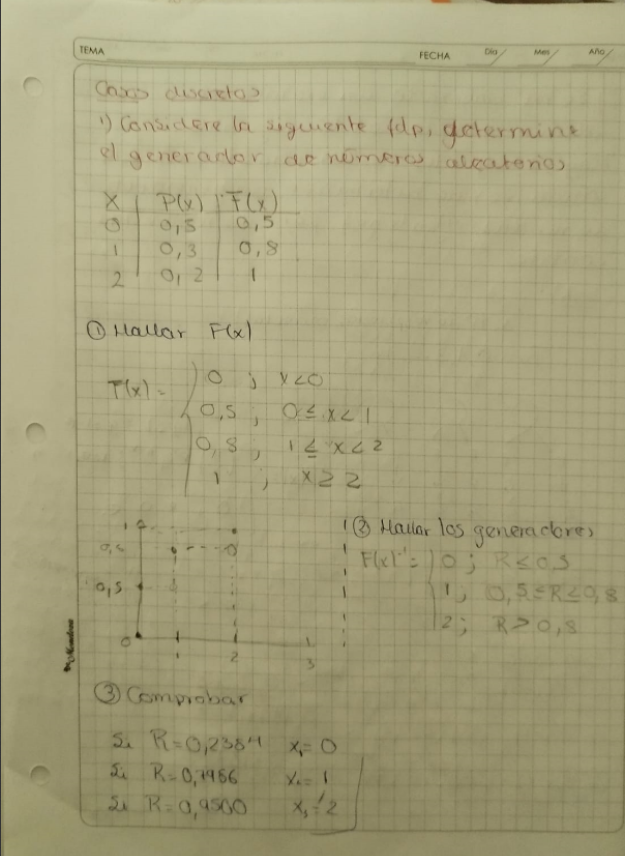 TEMA
FECHA Día Mes Año
Casos discretos
1) Considere la siguiente fdp, determine
el generador de números aleatorios
X P(x) F(x)
0 0,5 0,5
1 0,3 0,8
2 0,2 1
① Hallar F(x)
F(x) = 0 ; x<0
0,5 , 0 ≤ x < 1
0,8 , 1 ≤ x < 2
1 ; x ≥ 2
1
0,5
0
1 2 3
② Hallar los generadores
F(x)⁻¹ = 0 ; R ≤ 0,5
1 ; 0,5 ≤ R ≤ 0,8
2 ; R > 0,8
③ Comprobar
Si R=0,2384 x₁= 0
Si R=0,7986 = 1
Si R=0,9500 x₃= 2